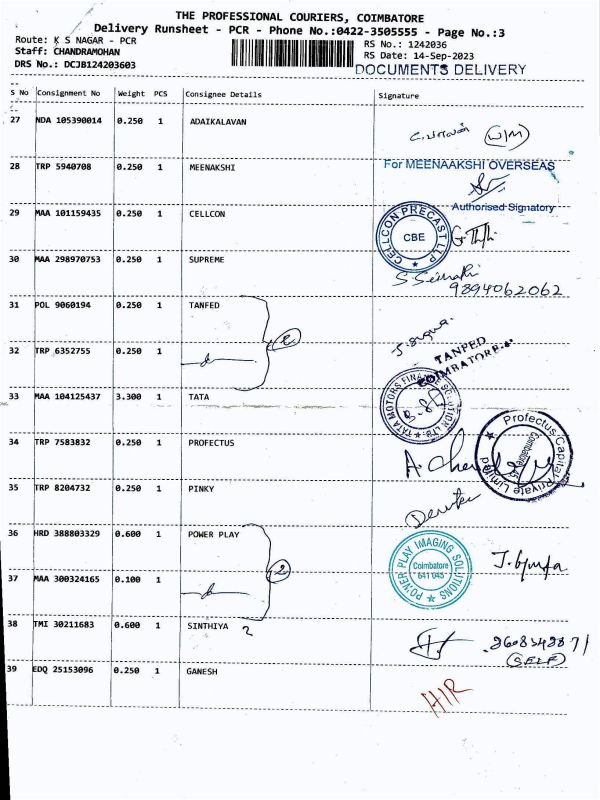 THE PROFESSIONAL COURIERS, COIMBATORE
Delivery Runsheet - PCR - Phone No.:0422-3505555 - Page No.:3
Route: K S NAGAR - PCR
RS No.: 1242036
Staff: CHANDRAMOHAN
RS Date: 14-Sep-2023
DRS No.: DCJB124203603
DOCUMENTS DELIVERY
S No Consignment No Weight PCS Consignee Details Signature
27 NDA 105390014 0.250 1 ADAIKALAVAN
28 TRP 5940708 0.250 1 MEENAKSHI
For MEENAAKSHI OVERSEAS
Authorised Signatory
29 MAA 101159435 0.250 1 CELLCON
CELLCON PRECAST LLP
CBE
30 MAA 298970753 0.250 1 SUPREME
9894062062
31 POL 9060194 0.250 1 TANFED
32 TRP 6352755 0.250 1
TANFED
COIMBATORE
33 MAA 104125437 3.300 1 TATA
34 TRP 7583832 0.250 1 PROFECTUS
Profectus Capital Private Limited
35 TRP 8204732 0.250 1 PINKY
36 HRD 388803329 0.600 1 POWER PLAY
2
POWER PLAY IMAGING SOLUTIONS
Coimbatore
641 045
37 MAA 300324165 0.100 1
38 TMI 30211683 0.600 1 SINTHIYA 2
(SELF)
39 EDQ 25153096 0.250 1 GANESH